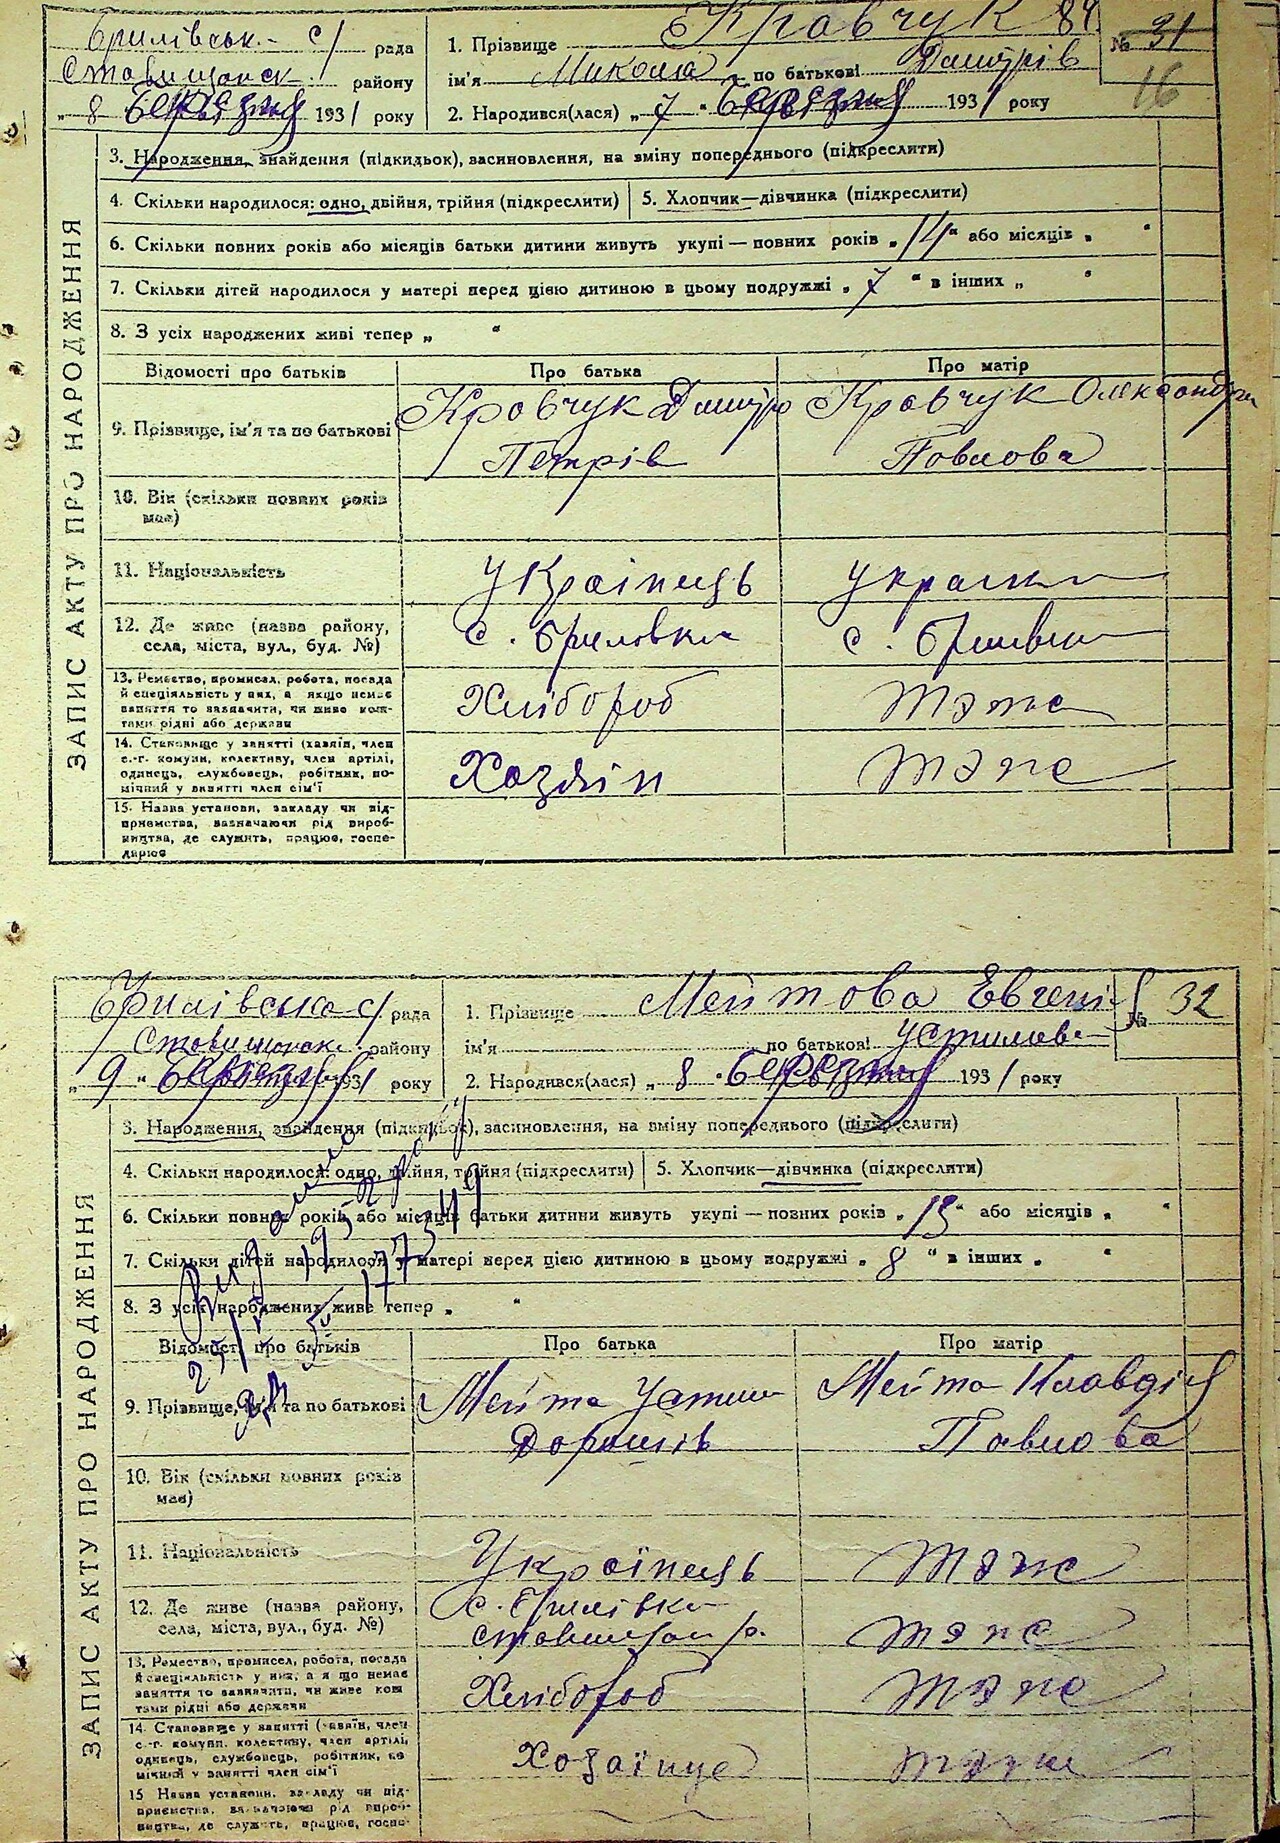 ЗАПИС АКТУ ПРО НАРОДЖЕННЯ
Брилівськ. с/ рада
Ставищанськ. району
„ 8 березня 1931 року
1. Прізвище Кравчук 84
ім'я Микола по батькові Дмитрів
2. Народився(лася) „ 7 " березня 1931 року
№ 31
16
3. Народження, знайдення (підкидьок), засиновлення, на зміну попереднього (підкреслити)
4. Скільки народилося: одно, двійня, трійня (підкреслити) 5. Хлопчик—дівчинка (підкреслити)
6. Скільки повних років або місяців батьки дитини живуть укупі — повних років „ 14 " або місяців „ "
7. Скільки дітей народилося у матері перед цією дитиною в цьому подружжі „ 7 " в інших „ "
8. З усіх народжених живі тепер „ "
Відомості про батьків Про батька Про матір
9. Прізвище, ім'я та по батькові Кравчук Дмитро Кравчук Олександра
Петрів Павлова
10. Вік (скільки повних років
має)
11. Національність Українець Украінка
12. Де живе (назва району,
села, міста, вул., буд. №) с. Бриловка с. Брилівка
13. Ремество, промисел, робота, посада
й спеціяльність у них, а якщо немає
заняття то зазначити, чи живе кош-
тами рідні або держави
Хлібороб тэже
14. Становище у занятті (хазяїн, член
с.-г. комуни, колективу, член артілі,
одинець, службовець, робітник, по-
мічний у занятті член сім'ї
Хазяін тэже
15. Назва установи, закладу чи під-
приємства, зазначаючи рід вироб-
ництва, де служить, працює, госпо-
дарює
ЗАПИС АКТУ ПРО НАРОДЖЕННЯ
Брилівська с/ рада
Ставищанськ. району
„ 9 " березня 1931 року
1. Прізвище Мейтова Евгенія
ім'я по батькові Устимова
2. Народився(лася) „ 8 " березня 1931 року
№ 32
3. Народження, знайдення (підкидьок), засиновлення, на зміну попереднього (підкреслити)
4. Скільки народилося: одно, двійня, трійня (підкреслити) 5. Хлопчик—дівчинка (підкреслити)
6. Скільки повних років або місяців батьки дитини живуть укупі — повних років „ 13 " або місяців „ "
7. Скільки дітей народилося у матері перед цією дитиною в цьому подружжі „ 8 " в інших „ "
8. З усіх народжених живе тепер „ "
Відомості про батьків Про батька Про матір
9. Прізвище, ім'я та по батькові Мейта Устим Мейта Клавдія
Павлова
10. Вік (скільки повних років
має)
11. Національність Українець тэже
12. Де живе (назва району,
села, міста, вул., буд. №) с. Брилівка
р. тэже
13. Ремество, промисел, робота, посада
й спеціяльність у них, а якщо немає
заняття то зазначити, чи живе кош
тами рідні або держави
Хлібороб тэже
14. Становище у занятті (хазяїн, член
с.-г. комуни, колективу, член артілі,
одинець, службовець, робітник, по
мічний у занятті член сім'ї
тэже
15 Назва установи, закладу чи під-
приємства, зазначаючи рід вироб-
ництва, де служить, працює, госпо-